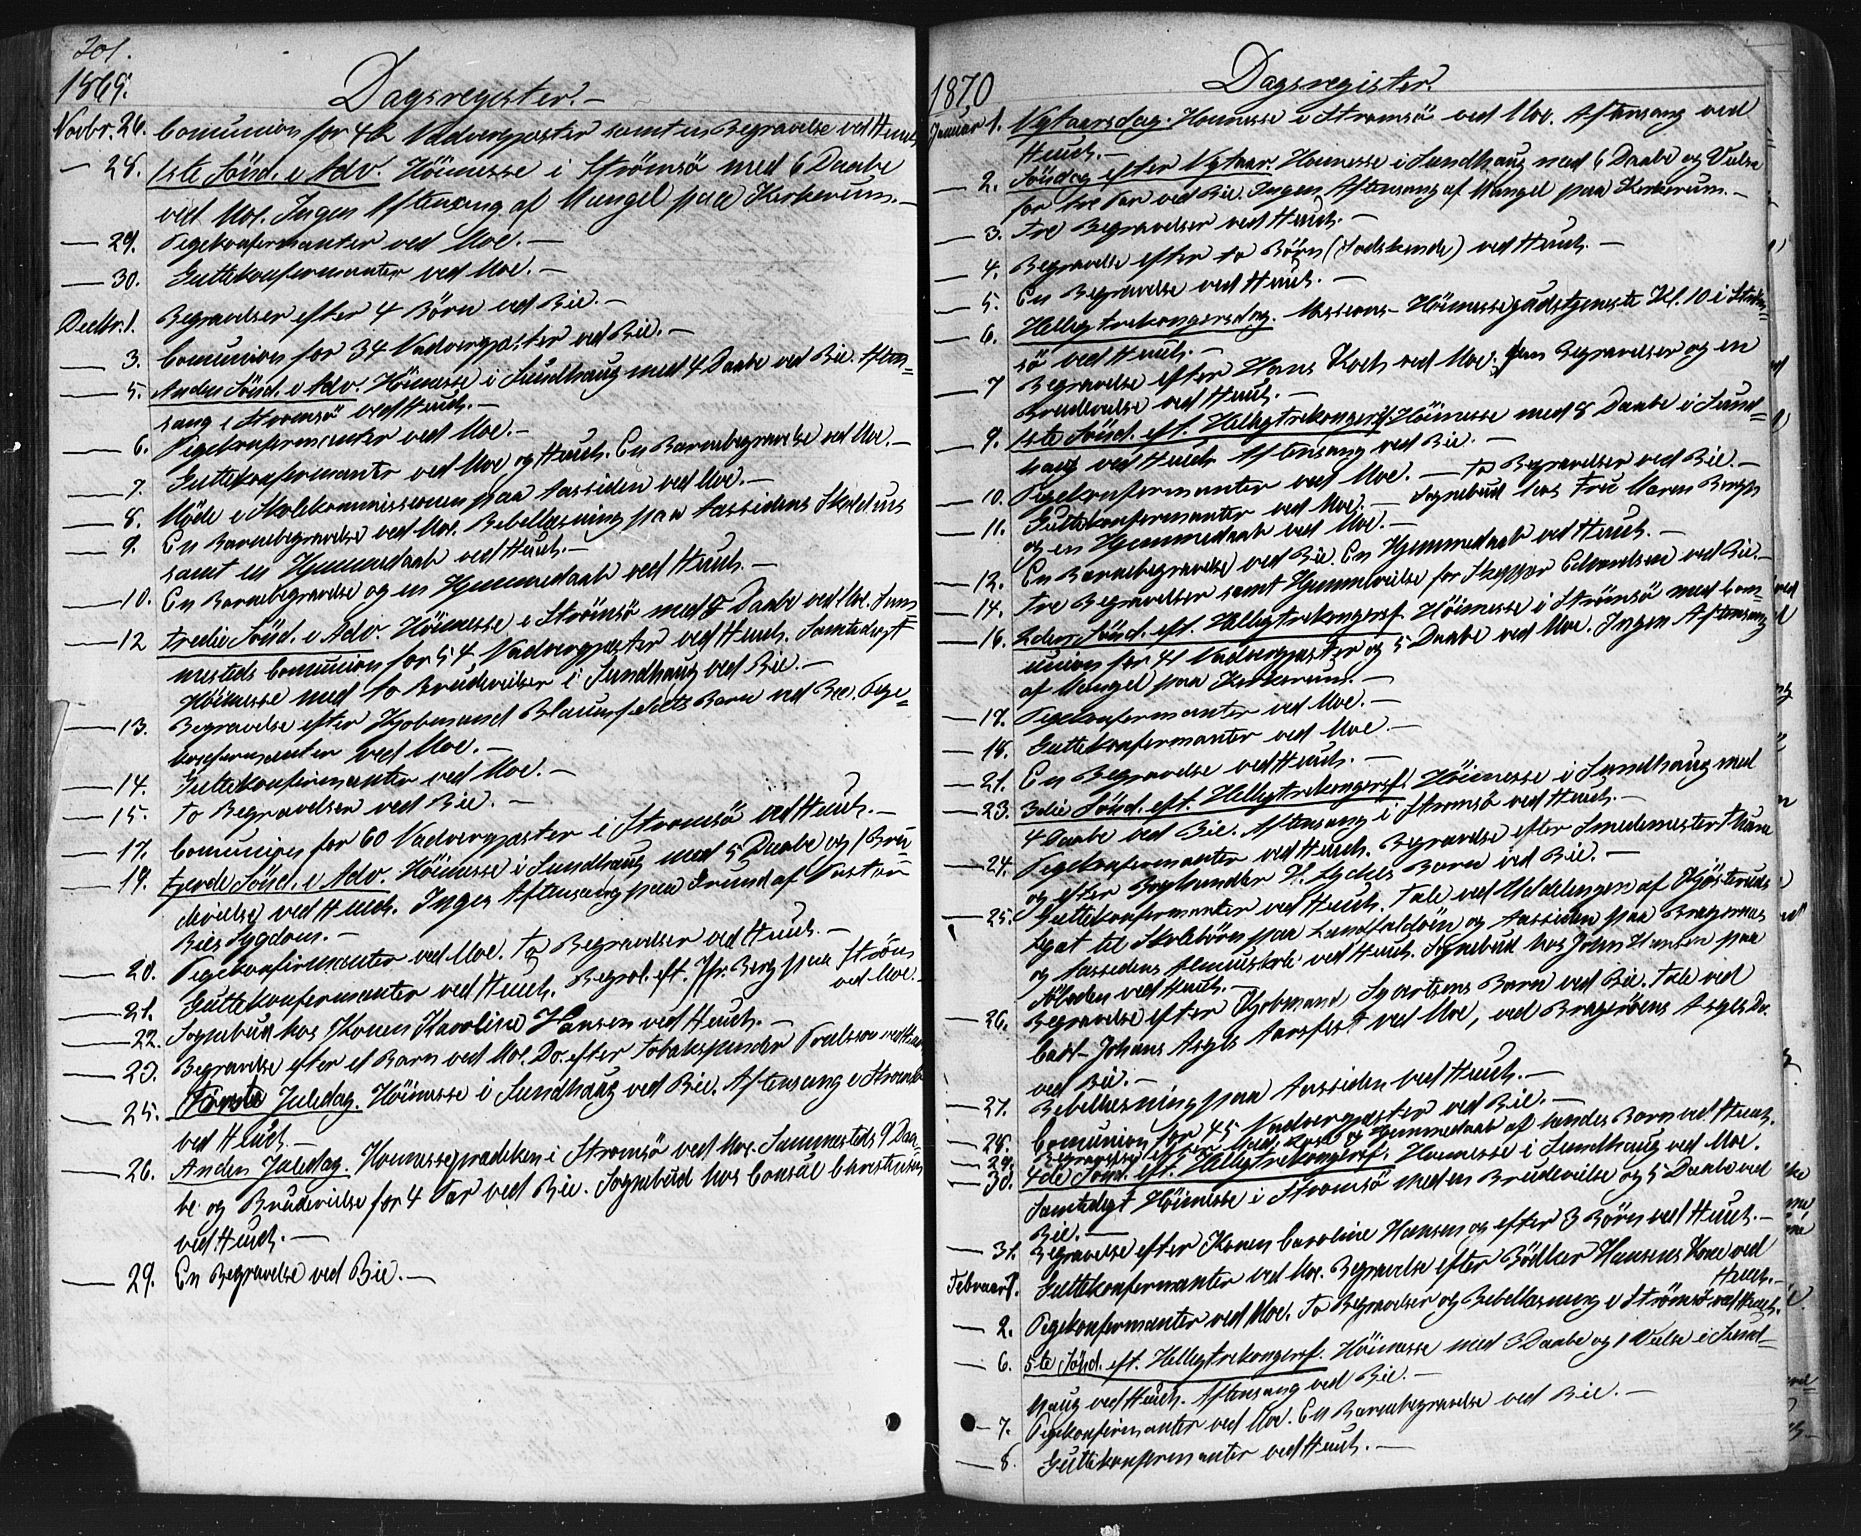 201.
1869.
Dagsregister.—
Novbr. 26. Comunion for 42 Nadvergjæster samt en Begravelse ved Heuch
— 28. 1ste Sönd. i Adv. Höimesse i Strömsö med 6 Daabe
ved Moe. Ingen Aftensang af Mangel paa Kirkerum.—
— 29. Pigekonfirmanter ved Moe.—
— 30. Guttekonfirmanter ved Moe.—
Decbr. 1. Begravelser efter 4 Börn ved Bie.—
— 3. Comunion for 34 Nadvergjæster ved Bie.—
— 5. Anden Sönd. i Adv. Höimesse i Sundhaug med 4 Daabe ved Bie. Aften=
sang i Strömsö ved Heuch.—
— 6. Pigekonfirmanter ved Moe.—
— 7. Guttekonfirmanter ved Moe og Heuch. En Barnebegravelse ved Moe.—
— 8. Möde i Skolekommissionen paa Tassiden ved Moe.—
— 9. En Barnebegravelse ved Moe. Bibellæsning paa Tassidens Skolehus
samt en Hjemmedaab ved Heuch.—
— 10. En Barnebegravelse og en Hjemmedaab ved Heuch.—
— 12 Tredie Sönd. i Adv. Höimesse i Strömsö med 8 Daabe ved Moe. Sam=
mesteds Comunion for 54 Nadvergjæster ved Heuch. Samtidigt
Höimesse med to Brudevielser i Sundhaug ved Bie.—
— 13. Begravelse efter Kjöbmand Blauenfeldts Barn ved Bie. Pige=
konfirmanter ved Moe.—
— 14. Guttekonfirmanter ved Moe.—
— 15. To Begravelser ved Bie.—
— 17. Comunion for 60 Nadvergjæster i Strömsö ved Heuch.—
— 19. Fjerde Sönd. i Adv. Höimesse i Sundhaug med 5 Daabe og 1 Bru
devielse ved Heuch. Ingen Aftensang paa Grund af Pastor
Bies Sygdom.—
— 20. Pigekonfirmanter ved Moe. To Begravelser ved Heuch.—
— 21. Guttekonfirmanter ved Heuch. Begrav. eft. Jfr. Berg paa Ströms
ved Moe.—
— 22. Sognebud hos Konen Karoline Hansen ved Heuch.—
— 23. Begravelse efter et Barn ved Moe. Do. efter Tobakspinder ved Heuch
— 25. Förste Juledag. Höimesse i Sundhaug ved Bie. Aftensang i Strömsö
ved Heuch.—
— 26. Anden Juledag. Höimesseprædiken i Strömsö ved Moe. Sammesteds 9 Daa=
be og Brudevielse for 4 Par ved Bie. Sognebud hos Consul Christensen
ved Heuch.—
— 29. En Begravelse ved Bie.—
1870
Dagsregister.
Januar 1. Nytaarsdag. Höimesse i Strömsö ved Moe. Aftensang ved
Heuch.—
— 2. Söndag efter Nytaar. Höimesse i Sundhaug med 6 Daabe og Vielse
for tre Par ved Bie. Ingen Aftensang af Mangel paa Kirkerum.—
— 3. Tre Begravelser ved Heuch.—
— 4. Begravelse efter to Börn (Jodskende) ved Heuch.—
— 5. En Begravelse ved Heuch.—
— 6. Helligtrekongersdag. Missions-Höimessegudstjeneste Kl. 10 i Ström=
sö ved Heuch.—
— 7 Begravelse efter Hans Koch ved Moe; fem Begravelser og en
Brudevielse ved Heuch.—
— 9. 1ste Sönd. eft. Helligtrekongersf. Höimesse med 8 Daabe i Sund=
haug ved Heuch. Aftensang ved Bie.—
— 10. Pigekonfirmanter ved Moe.— To Begravelser ved Bie.—
— 11. Guttekonfirmanter ved Moe.— Sognebud hos Fru Maren Bergh
og en Hjemmedaab ved Moe.—
— 12. En Barnebegravelse ved Bie. En Hjemmedaab ved Heuch.—
— 14. Tre Begravelser samt Hjemmevielse for Skipper Edvardsen ved Bie.—
— 16. 2den Sönd. eft. Helligtrekongersf. Höimesse i Strömsö med Com=
union for 41 Nadvergjæster og 5 Daabe ved Moe. Ingen Aftensang
af Mangel paa Kirkerum.—
— 17. Pigekonfirmanter ved Moe.—
— 18. Guttekonfirmanter ved Moe.—
— 21. En Begravelse ved Heuch.—
— 23. 3die Sönd. eft. Helligtrekongersf. Höimesse i Sundhaug med
4 Daabe ved Bie. Aftensang i Strömsö ved Heuch.—
— 24. Pigekonfirmanter ved Heuch. Begravelse efter Smedemester Thurn
og efter Boghandler H. Lyches Barn ved Bie.—
— 25. Guttekonfirmanter ved Heuch. Tale ved Uddelingen af Kjösteruds
Legat til Skolebörn paa Landfaldöen og Tassiden paa Bragernæs
og Tassidens Almueskole ved Heuch. Sognebud hos John Hansen paa
ved Heuch.—
— 26. Begravelse efter Kjöbmand Syvertsens Barn ved Bie. Tale ved
Carl-Johans Asyls Aarsfest ved Moe, ved Bragernæs Asyls Do.
ved Bie.—
— 27. Bibellæsning paa Tassiden ved Heuch.—
— 28. Comunion for 45 Nadvergjæster ved Bie.—
— 29. Begravelse efter Mad. og Hjemmedaab af hendes Barn ved Heuch.
— 30. 4de Sönd. eft. Helligtrekongersf. Höimesse i Sundhaug ved Moe.
Samtidigt Höimesse i Strömsö med en Brudevielse og 5 Daabe ved
Bie.—
— 31. Begravelse efter Konen Caroline Hansen og efter 3 Börn ved Heuch.—
Februar 1. Guttekonfirmanter ved Moe. Begravelse efter Bödker Hansens Kone ved
Heuch.—
— 2. Pigekonfirmanter ved Moe. To Begravelser og Bibellæsning i Strömsö ved Heuch.
— 6. 5te Sönd. eft. Helligtrekongersf. Höimesse med 3 Daabe og 1 Vielse i Sund=
haug ved Heuch. Aftensang ved Bie.—
— 7. Pigekonfirmanter ved Moe. En Barnebegravelse ved Bie.—
— 8. Guttekonfirmanter ved Heuch.—